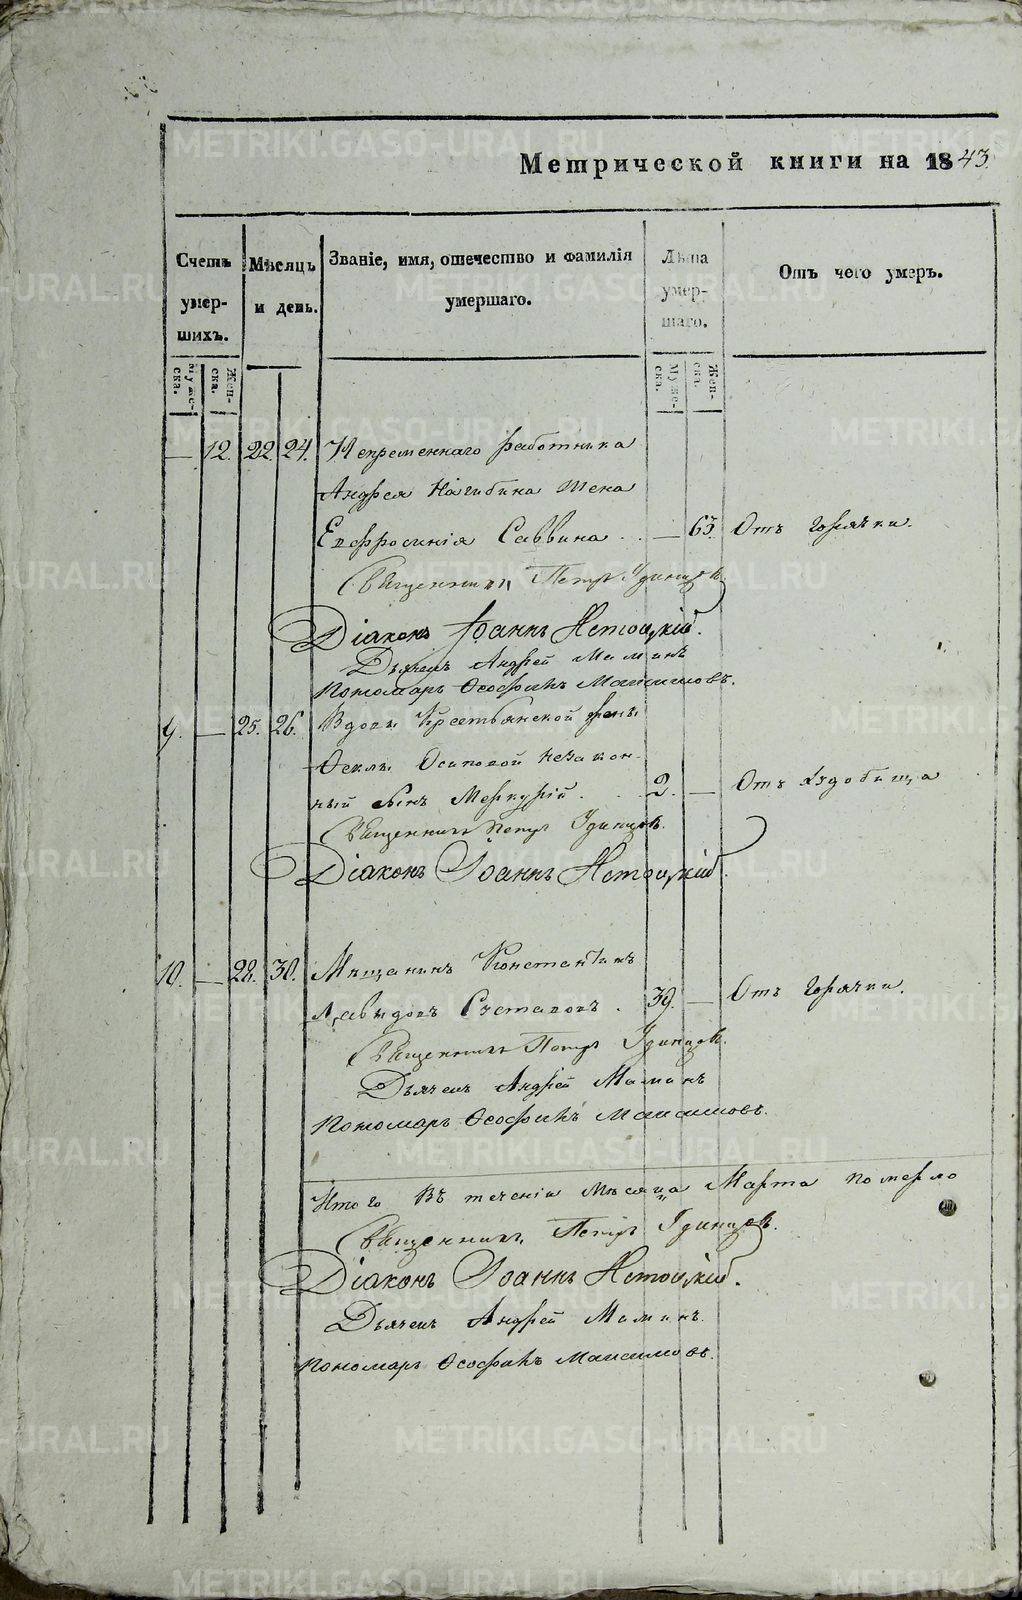 METRIKI.GASO-URAL.RU
Метрической книги на 1843.
Счетъ умер-шихъ.
Мѣсяцъ и день.
Званіе, имя, отечество и фамилія умершаго.
Лѣта умер-шаго.
Отъ чего умеръ.
Муже-ска.
Жен-ска.
Муже-ска.
Жен-ска.
— 12. 22 24. Непременнаго работника
Андрея Нагибина жена
Евфросинія Саввина . . — 63. Отъ горячки.
Священникъ Петръ Удинцовъ.
Діаконъ Іоаннъ
Дьячекъ Андрей Маминъ
Пономарь Ѳеофанъ Максимовъ.
9. — 25. 26. Вдовы Крестьянской жены
Ѳеклы Осиповой незакон-
ный сынъ Меркурій . . 2. — Отъ
Священникъ Петръ Удинцовъ.
Діаконъ Іоаннъ
10. — 28. 30. Мѣщанинъ Константинъ
Давыдовъ . 39. — Отъ горячки.
Священникъ Петръ Удинцовъ.
Дьячекъ Андрей Маминъ
Пономарь Ѳеофанъ Максимовъ.
Итого въ теченіи Мѣсяца Марта померло
Священникъ Петръ Удинцовъ.
Діаконъ Іоаннъ
Дьячекъ Андрей Маминъ.
Пономарь Ѳеофанъ Максимовъ.